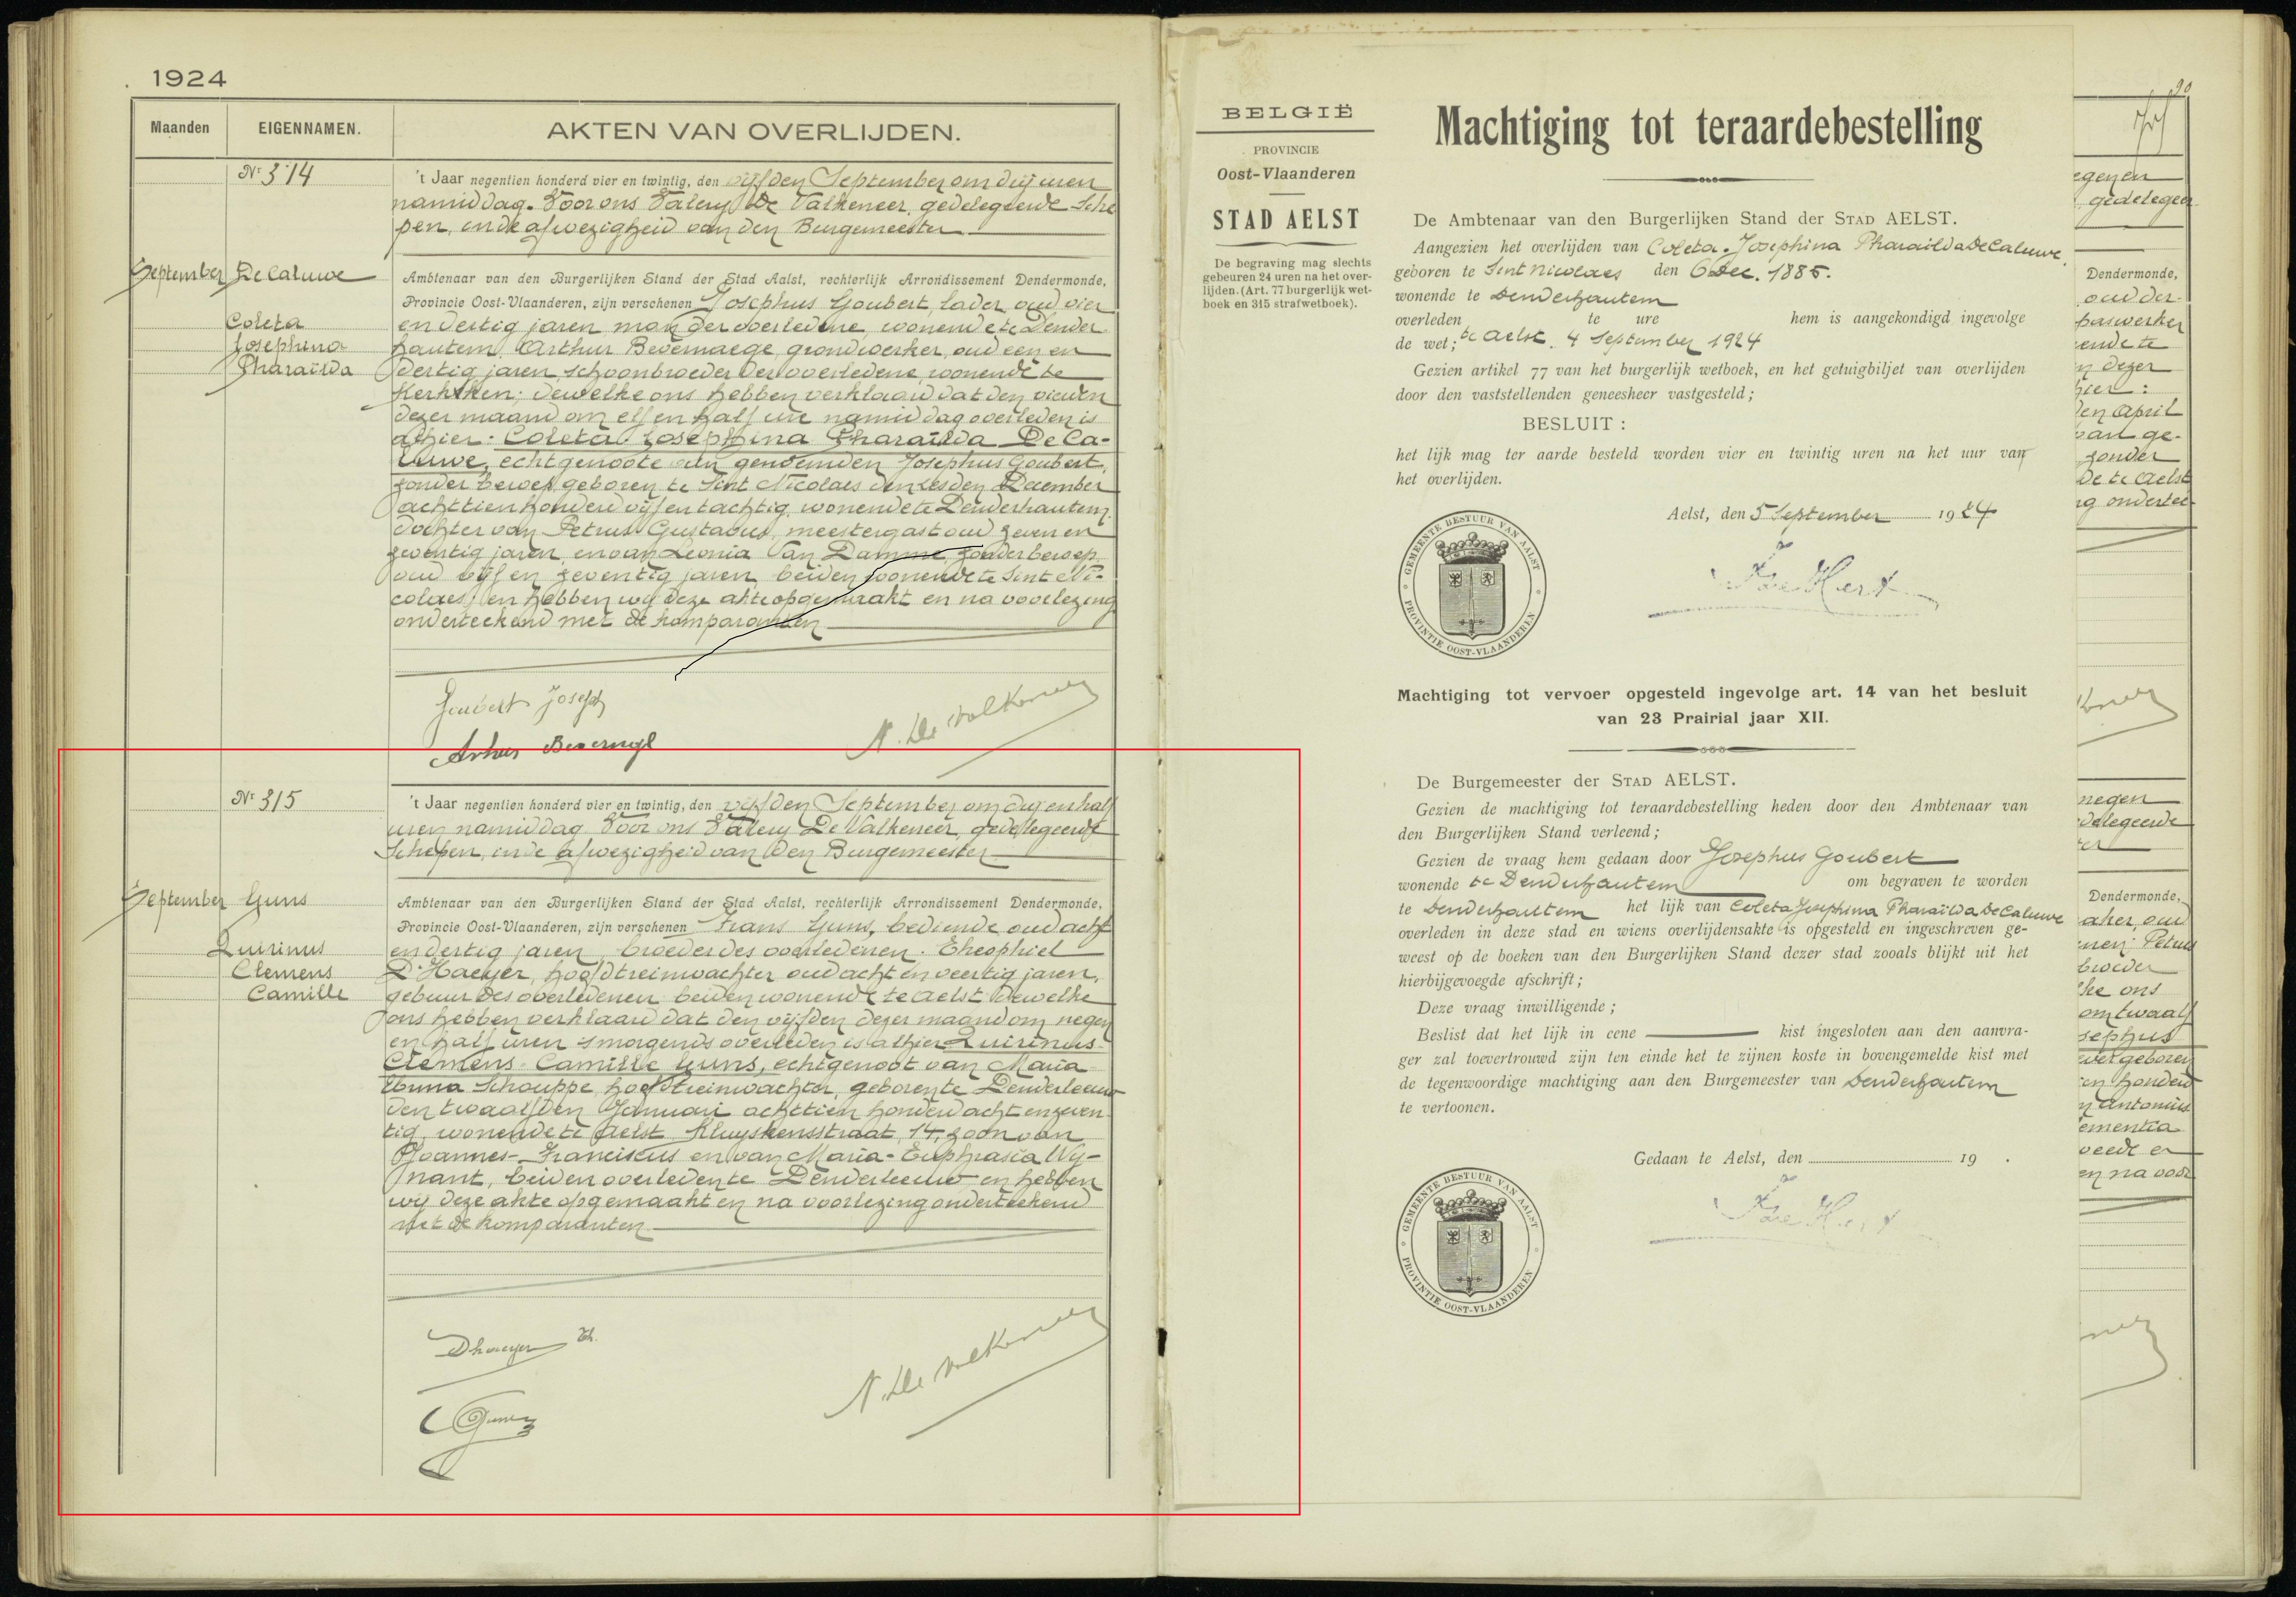 1924
Maanden
EIGENNAMEN.
AKTEN VAN OVERLIJDEN.
Nr 314
't Jaar negentien honderd vier en twintig, den vijfden September om drij uren
namiddag. Voor ons Valery De Valkeneer, gedelegeerde Sche
pen, in de afwezigheid van den Burgemeester
September
De Caluwe
Coleta
Josephina
Pharaïlda
Ambtenaar van den Burgerlijken Stand der Stad Aalst, rechterlijk Arrondissement Dendermonde,
Provincie Oost-Vlaanderen, zijn verschenen Josephus Goubert, lader, oud vier
en dertig jaren, man der overledene, wonende te Dender
hautem, Arthur Bevernaege, grondwerker, oud een en
dertig jaren, schoonbroeder der overledene, wonende te
Kerksken; dewelke ons hebben verklaard dat den vierden
dezer maand om elf en half ure namiddag overleden is
alhier: Coleta Josephina Pharaïlda De Ca-
luwe, echtgenoote van genoemden Josephus Goubert,
zonder beroep, geboren te Sint Nicolaes den zesden December
achttien honderd vijf en tachtig, wonende te Denderhautem,
dochter van Petrus Gustavus, meestergast oud zeven en
zeventig jaren, en van Leonia Van Damme, zonder beroep
oud vijf en zeventig jaren, beiden wonende te Sint Ni-
colaes; en hebben wij deze akte opgemaakt en na voorlezing
onderteekend met de komparanten
Goubert Joseph
V. De Valkeneer
Nr 315
't Jaar negentien honderd vier en twintig, den vijfden September om drij en half
uren namiddag. Voor ons Valery De Valkeneer, gedelegeerde
Schepen, in de afwezigheid van den Burgemeester
September
Guns
Quirinus
Clemens
Camille
Ambtenaar van den Burgerlijken Stand der Stad Aalst, rechterlijk Arrondissement Dendermonde,
Provincie Oost-Vlaanderen, zijn verschenen Frans Guns, bediende, oud acht
en dertig jaren, broeder des overledenen. Theophiel
D'Haeyer, hoofdtreinwachter oud acht en veertig jaren,
gebuur des overledenen, beiden wonende te Aelst dewelke
ons hebben verklaard dat den vijfden dezer maand om negen
en half uren 'smorgends overleden is alhier Quirinus
Clemens Camille Guns, echtgenoot van Maria
Anna Schouppe, hoofdtreinwachter, geboren te Denderleeuw
den twaalfden Januari achttien honderd acht en zeven
tig, wonende te Aelst Kluyskensstraat, 14, zoon van
Joannes-Franciskus en van Maria-Euphrasia Wij-
nant, beiden overleden te Denderleeuw en hebben
wij deze akte opgemaakt en na voorlezing onderteekend
met de komparanten
Dhaeyer Th.
Guns
V. De Valkeneer
BELGIË
PROVINCIE
Oost-Vlaanderen
STAD AELST
De begraving mag slechts
gebeuren 24 uren na het over-
lijden. (Art. 77 burgerlijk wet-
boek en 315 strafwetboek).
Machtiging tot teraardebestelling
De Ambtenaar van den Burgerlijken Stand der STAD AELST.
Aangezien het overlijden van Coleta-Josephina Pharaïlda De Caluwe
geboren te Sint Nicolaes den 6 Dec. 1885.
wonende te Denderhautem
overleden te ure hem is aangekondigd ingevolge
de wet; te Aelst 4 September 1924
Gezien artikel 77 van het burgerlijk wetboek, en het getuigbiljet van overlijden
door den vaststellenden geneesheer vastgesteld;
BESLUIT :
het lijk mag ter aarde besteld worden vier en twintig uren na het uur van
het overlijden.
Aelst, den 5 September 1924
GEMEENTE BESTUUR VAN AALST
PROVINTIE OOST-VLAANDEREN
Machtiging tot vervoer opgesteld ingevolge art. 14 van het besluit
van 23 Prairial jaar XII.
De Burgemeester der STAD AELST.
Gezien de machtiging tot teraardebestelling heden door den Ambtenaar van
den Burgerlijken Stand verleend;
Gezien de vraag hem gedaan door Josephus Goubert
wonende te Denderhautem om begraven te worden
te Denderhautem het lijk van Coleta Josephina Pharaïlda De Caluwe
overleden in deze stad en wiens overlijdensakte is opgesteld en ingeschreven ge-
weest op de boeken van den Burgerlijken Stand dezer stad zooals blijkt uit het
hierbijgevoegde afschrift;
Deze vraag inwilligende;
Beslist dat het lijk in eene kist ingesloten aan den aanvra-
ger zal toevertrouwd zijn ten einde het te zijnen koste in bovengemelde kist met
de tegenwoordige machtiging aan den Burgemeester van Denderhautem
te vertoonen.
Gedaan te Aelst, den 19 .
GEMEENTE BESTUUR VAN AALST
PROVINTIE OOST-VLAANDEREN
90
egen en
gedelegeer
Dendermonde,
oud der-
paswerker
ende te
n dezer
hier :
den April
van ge-
zonder
de te Aelst
ng ondertee-
negen
delegeerde
er
Dendermonde,
aker, oud
nen; Petrus
broeder
lke ons
om twaalf
sephus
ver geboren
en honderd
n Antonius
ementia
weede en
en na voor